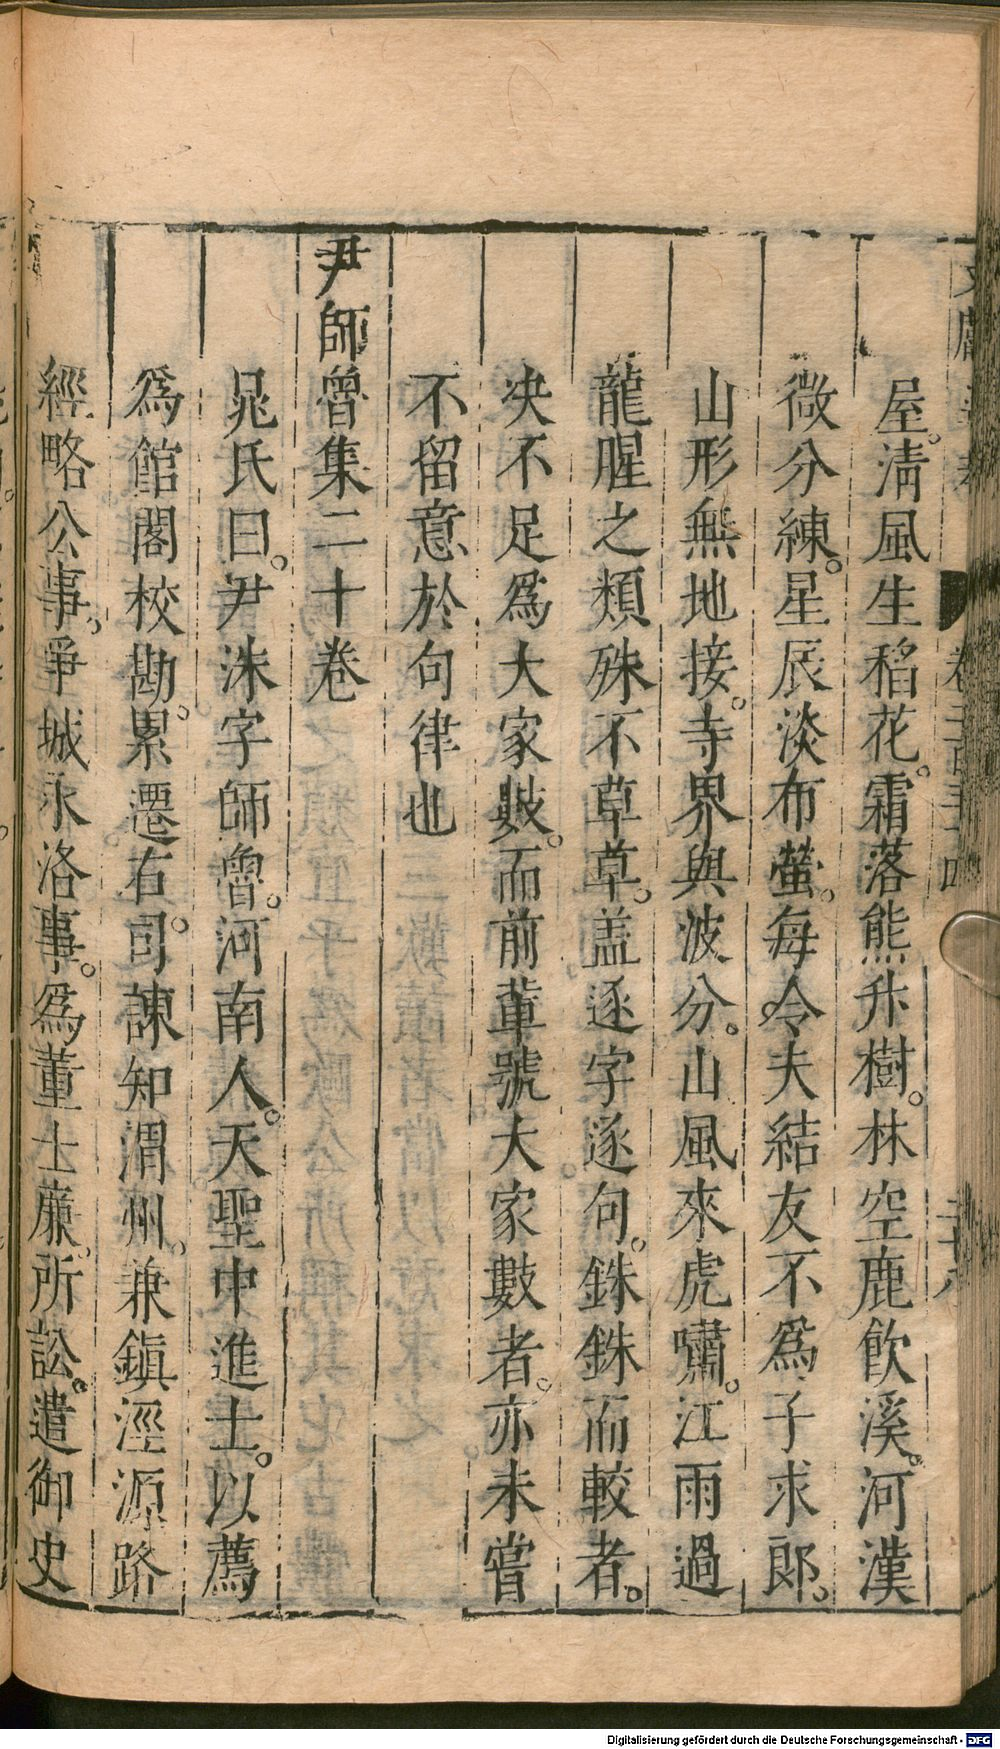 卷二百三十四
屋。清風生稻花。霜落熊升樹。林空鹿飲溪。河漢
微分練。星辰淡布螢。每令夫結友不爲子求郎。
山形無地接。寺界與波分。山風來虎嘯。江雨過
龍腥之類殊不草草。盖逐字逐句。銖銖而較者。
决不足爲大家數。而前軰號大家數者。亦未嘗
不留意於句律也
尹師魯集二十卷
晁氏曰。尹洙字師魯。河南人。天聖中進士。以薦
爲館閣校勘。累遷右司諫知渭州。兼鎮涇源路
經略公事。爭城水洛事。爲董士廉。所訟。遣御史
Digitalisierung gefördert durch die Deutsche Forschungsgemeinschaft - DFG